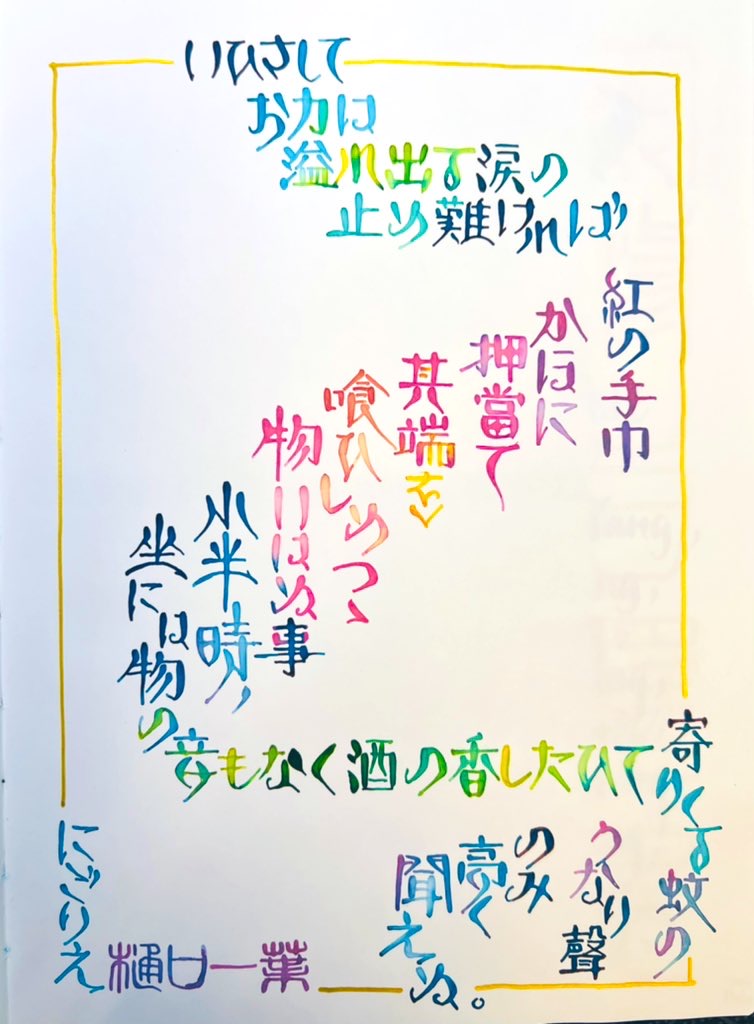 いひさして
お力は
溢れ出る涙の
止め難ければ
紅の手巾
かほに
押當て
其端を
喰ひしめつゝ
物いはぬ事
小半時、
坐には物の
音もなく酒の香したひて
寄りくる蚊の
うなり聲
のみ
高く
聞えぬ。
にごりえ
樋口一葉